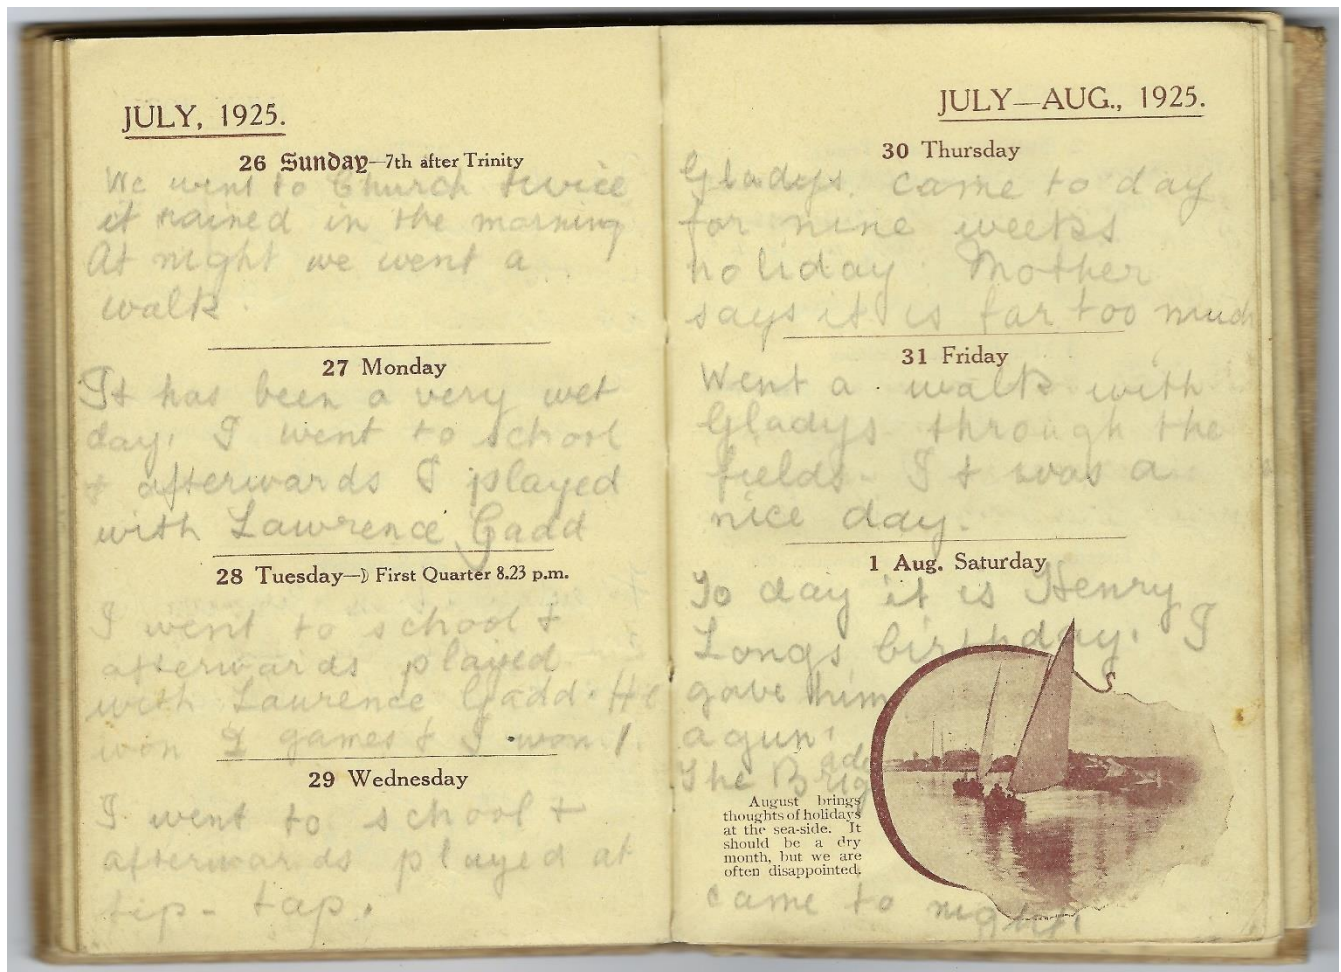 JULY, 1925.
26 Sunday—7th after Trinity
We went to Church twice
it rained in the morning
At night we went a
walk
27 Monday
It has been a very wet
day. I went to school
& afterwards I played
with Lawrence Gadd
28 Tuesday—☽ First Quarter 8.23 p.m.
I went to school &
afterwards played
with Laurence Gadd. He
won 2 games & I won 1.
29 Wednesday
I went to school &
afterwards played at
tip - tap.
JULY—AUG., 1925.
30 Thursday
Gladys. came to day
for nine weeks
holiday. Mother
says it is far too much
31 Friday
Went a walk with
Gladys through the
fields. It was a
nice day.
1 Aug. Saturday
To day it is Henry
Longs birthday. I
gave him
a gun.
ade
The Brig
August brings
thoughts of holidays
at the sea-side. It
should be a dry
month, but we are
often disappointed.
came to night.